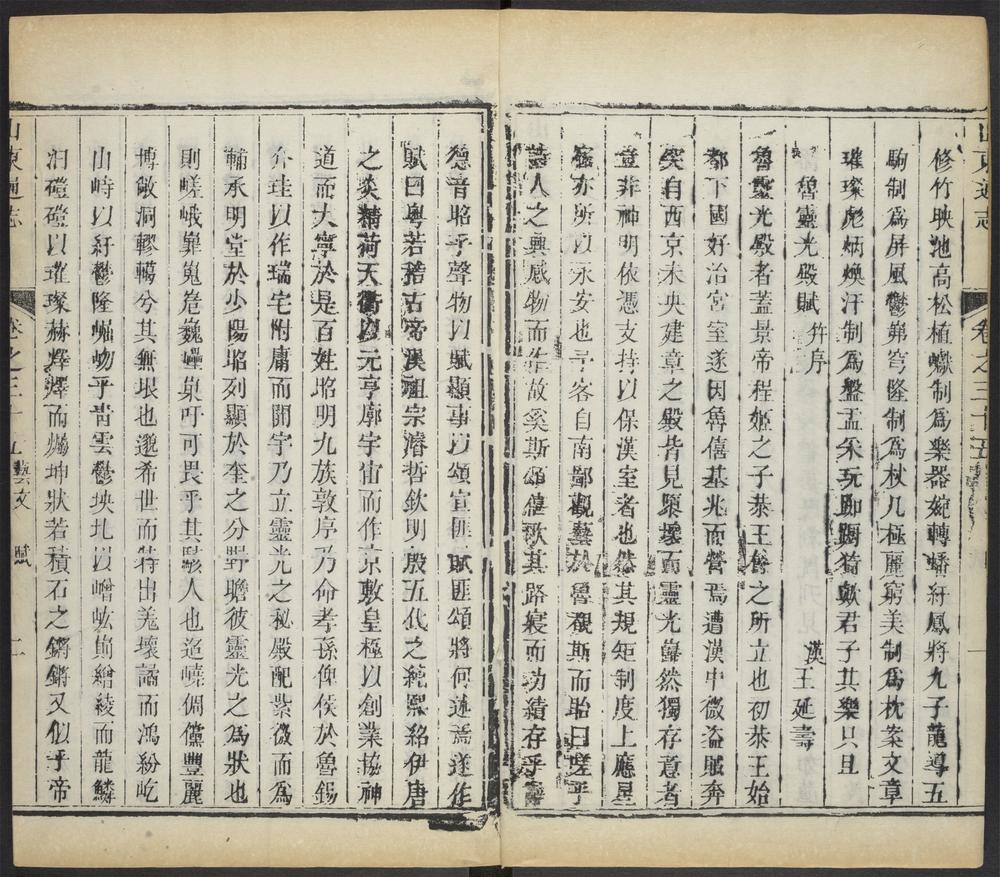 修竹映池高松植巘制為樂器婉轉蟠紆鳳將九子龍導五
駒制為屏風鬱岪穹隆制為杖几極麗窮美制為枕案文章
璀璨彪炳煥汗制為盤盂采玩踟躕猗歟君子其樂只且
魯靈光殿賦 并序 漢 王延壽
魯靈光殿者蓋景帝程姬之子恭王餘之所立也初恭王始
都下國好治宮室遂因魯僖基兆而營焉遭漢中微盜賊奔
突自西京未央建章之殿皆見隳壞而靈光巋然獨存意者
豈非神明依憑支持以保漢室者也然其規矩制度上應星
宿亦所以永安也予客自南鄙觀藝於魯覩斯而眙曰嗟乎
詩人之興感物而作故奚斯頌僖歌其路寢而功績存乎
山東通志 卷之三十五
德音昭乎聲物以賦顯事以頌宣匪賦匪頌將何述焉遂作
賦曰粵若稽古帝漢祖宗濬哲欽明殷五代之純熙紹伊唐
之炎精荷天衢以元亨廓宇宙而作京敷皇極以創業協神
道而大寧於是百姓昭明九族敦序乃命孝孫俾侯於魯錫
介珪以作瑞宅附庸而開宇乃立靈光之秘殿配紫微而為
輔承明堂於少陽昭列顯於奎之分野瞻彼靈光之為狀也
則嵯峨嶵嵬峞巍㠥㠑吁可畏乎其駭人也迢嶢倜儻豐麗
博敞洞轇轕兮其無垠也邈希世而特出羌瓌譎而鴻紛屹
山峙以紆鬱隆崛岉乎青雲鬱坱圠以嶒峵崱繒綾而龍鱗
汩磑磑以璀璨赫燡燡而爥坤狀若積石之鏘鏘又似乎帝
山東通志 卷之三十五 藝文 賦 二